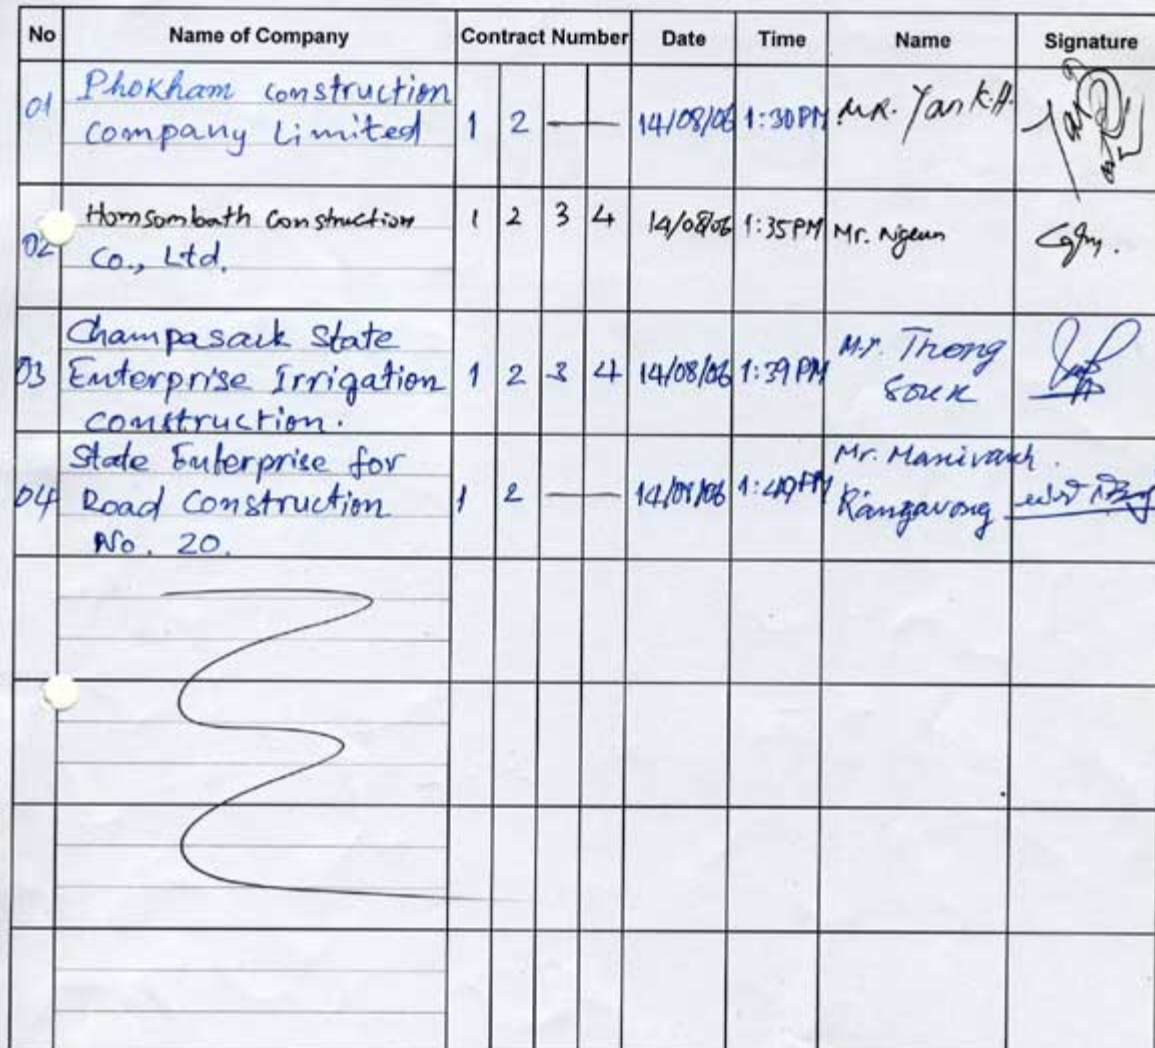 No Name of Company Contract Number Date Time Name Signature
01 Phokham construction Company Limited 1 2 — 14/08/06 1:30PM MR. Yan K.A.
02 Homsombath Construction Co., Ltd. 1 2 3 4 14/08/06 1:35PM Mr. Ngeun
03 Champasack State Enterprise Irrigation construction. 1 2 3 4 14/08/06 1:39PM Mr. Thong Souk
04 State Enterprise for Road Construction No. 20. 1 2 — 14/08/06 Mr. Manivanh